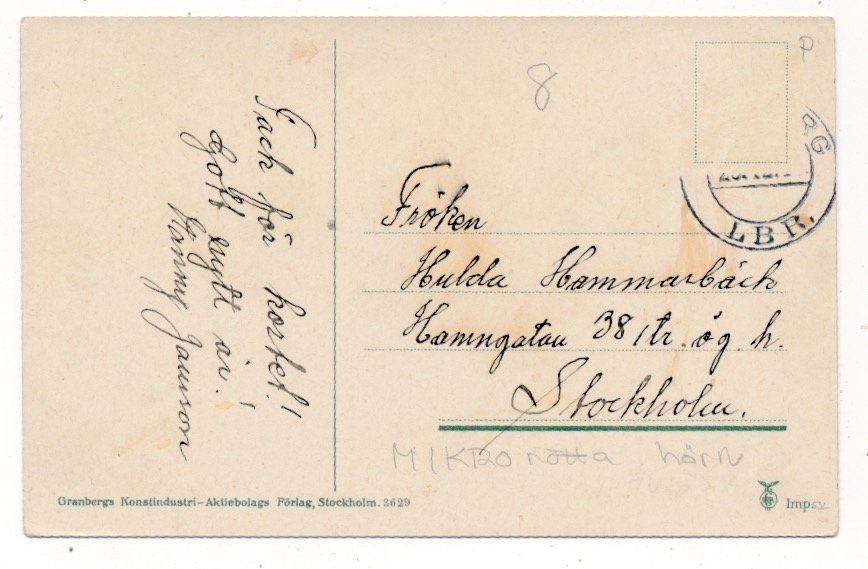 Tack för kortet!
Gott nytt år!
Hanny Jansson
8
Fröken
Hulda Hammarbäck
Hamngatan 38 1 tr. ög. h.
Stockholm.
LBR.
MIKRO hörn
Granbergs Konstindustri-Aktiebolags Förlag, Stockholm. 3629
Imp.